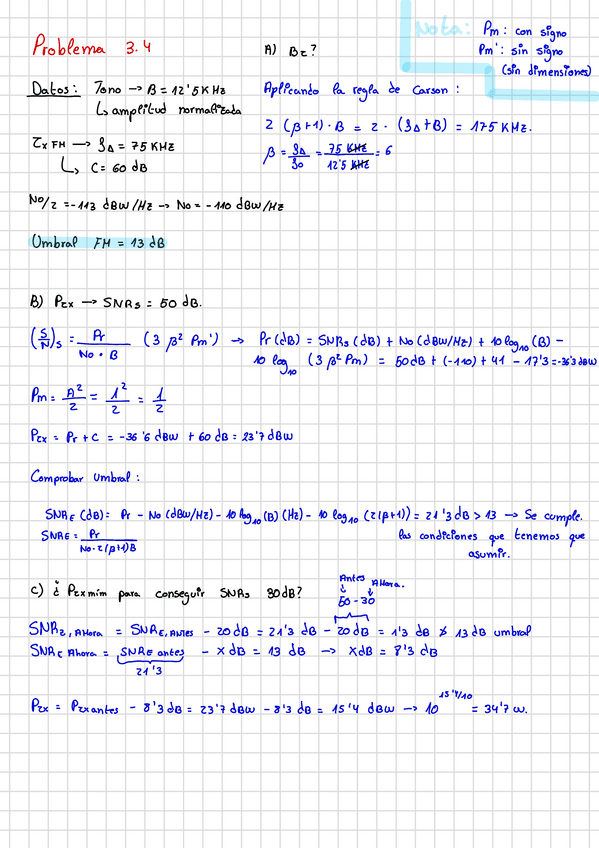 Nota: Pm: con signo
Pm': sin signo
(sin dimensiones)
Problema 3.4
Datos: Tono → B = 12'5 KHz
↳ amplitud normalizada
Tx FM → f∆ = 75 KHz
↳ C = 60 dB
No/2 = -113 dBW/Hz → No = -110 dBW/Hz
Umbral FM = 13 dB
A) BT?
Aplicando la regla de Carson:
2 (β+1) · B = 2 · (f∆+B) = 175 KHz.
β = f∆/f0 = 75 KHz/12'5 KHz = 6
B) PTX → SNRs = 50 dB.
(S/N)s = Pr/(No · B) (3 β² Pm') → Pr (dB) = SNRs (dB) + No (dBW/Hz) + 10 log10 (B) -
10 log10 (3 β² Pm) = 50 dB + (-110) + 41 - 17'3 = -36'3 dBW
Pm = A²/2 = 1²/2 = 1/2
PTX = Pr + C = -36'6 dBW + 60 dB = 23'7 dBW
Comprobar umbral:
SNRE (dB) = Pr - No (dBW/Hz) - 10 log10 (B) (Hz) - 10 log10 (2(β+1)) = 21'3 dB > 13 → Se cumple.
SNRE = Pr/(No · 2(β+1)B)
las condiciones que tenemos que
asumir.
C) ¿ PTX mím para conseguir SNRs 30 dB?
Antes Ahora.
↓ ↓
50 - 30
SNRE, Ahora = SNRE, Antes - 20 dB = 21'3 dB - 20 dB = 1'3 dB ≯ 13 dB umbral
SNRE Ahora = SNRE antes - X dB = 13 dB → X dB = 8'3 dB
21'3
PTX = PTX antes - 8'3 dB = 23'7 dBW - 8'3 dB = 15'4 dBW → 10^15'4/10 = 34'7 W.